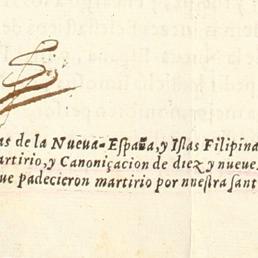 as de la Nueva-España, y Islas Filipina
artirio, y Canoniçacion de diez y nueue
ue padecieron martirio por nuestra sant